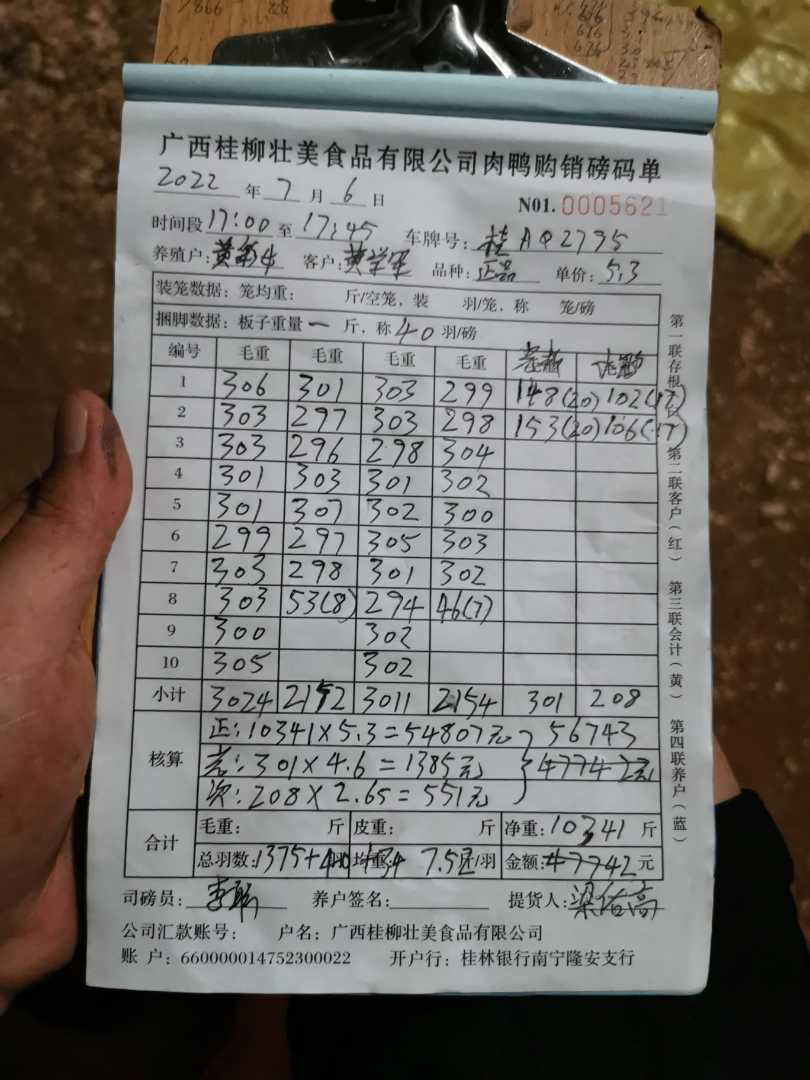 广西桂柳壮美食品有限公司肉鸭购销磅码单
2022 年 7 月 6 日 N01. 0005621
时间段 17:00 至 17:45 车牌号: 桂AQ2795
养殖户: 黄 客户: 黄 品种: 正品 单价: 5.3
装笼数据: 笼均重: 斤/空笼, 装 羽/笼, 称 笼/磅
捆脚数据: 板子重量 一 斤, 称 40 羽/磅
编号 毛重 毛重 毛重 毛重
1 306 301 303 299 148(20) 102(17)
2 303 297 303 298 153(20) 106(17)
3 303 296 298 304
4 301 303 301 302
5 301 307 302 300
6 299 297 305 303
7 303 298 301 302
8 303 53(8) 294 46(7)
9 300 302
10 305 302
小计 3024 2152 3011 2154 301 208
核算 正: 10341×5.3=54807元 56743
老: 301×4.6=1385元 47742元
次: 208×2.65=551元
合计 毛重: 斤 皮重: 斤 净重: 10341 斤
总羽数: 1375+ 均重 7.52/羽 金额: 47742 元
司磅员: 李 养户签名: 提货人: 梁佑高
公司汇款账号: 户名: 广西桂柳壮美食品有限公司
账 户: 660000014752300022 开户行: 桂林银行南宁隆安支行
第一联存根
第二联客户(红)
第三联会计(黄)
第四联养户(蓝)